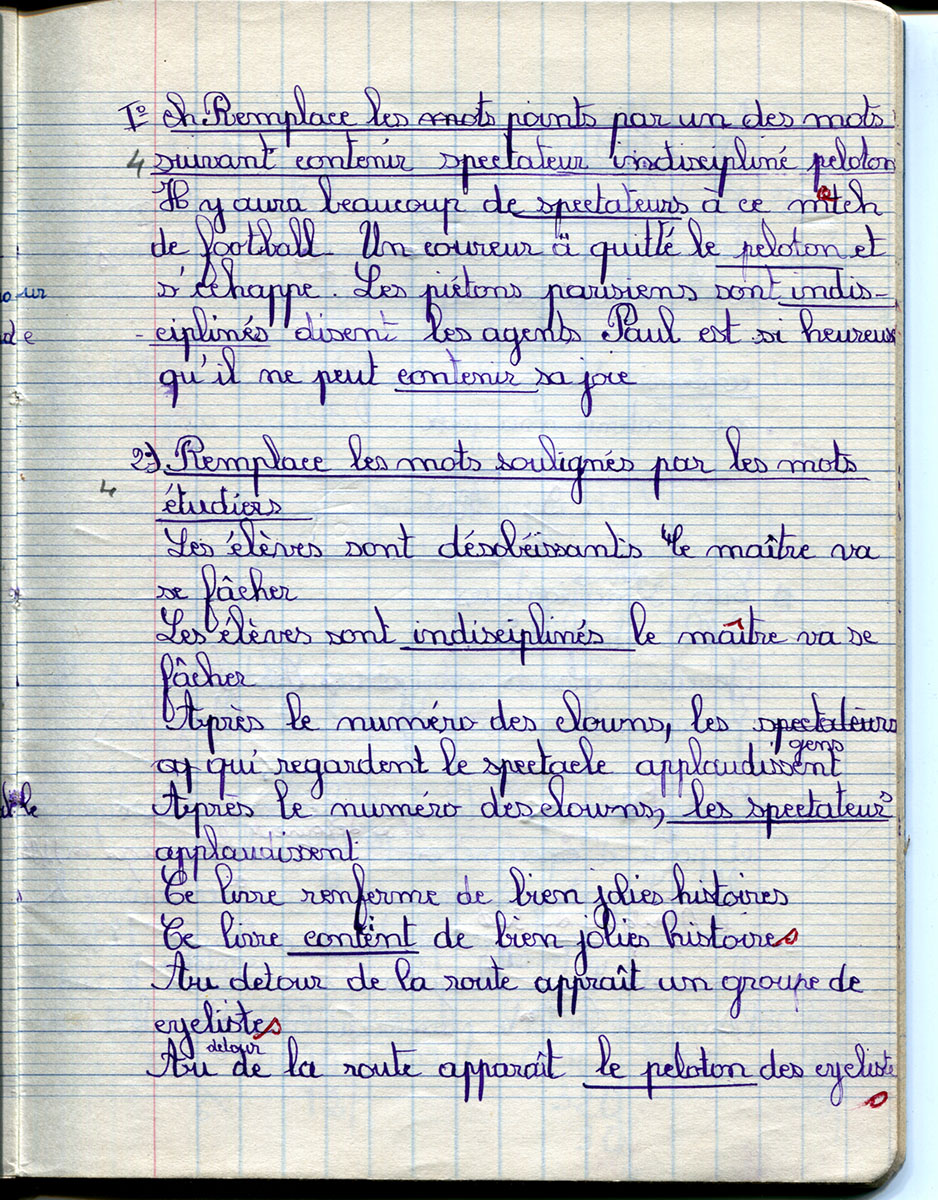 I° Ch. Remplace les mots points par un des mots
4 suivant contenir spectateur indiscipliné peloton
Il y aura beaucoup de spectateurs à ce match
de football. Un coureur à quitté le peloton et
s'échappe. Les piétons parisiens sont indis-
-ciplinés disent les agents Paul est si heureux
qu'il ne peut contenir sa joie
2°) Remplace les mots soulignés par les mots
4 étudiers
Les élèves sont désobéissants le maître va
se fâcher
Les élèves sont indisciplinés le maître va se
fâcher
Après le numéro des clowns, les spectateurs
gens
qui regardent le spectacle applaudissent
Après le numéro des clowns, les spectateurs
applaudissent
Ce livre renferme de bien jolies histoires
Ce livre contient de bien jolies histoires
Au detour de la route appraît un groupe de
cyclistes
Au detour de la route apparaît le peloton des cycliste
s
our
de